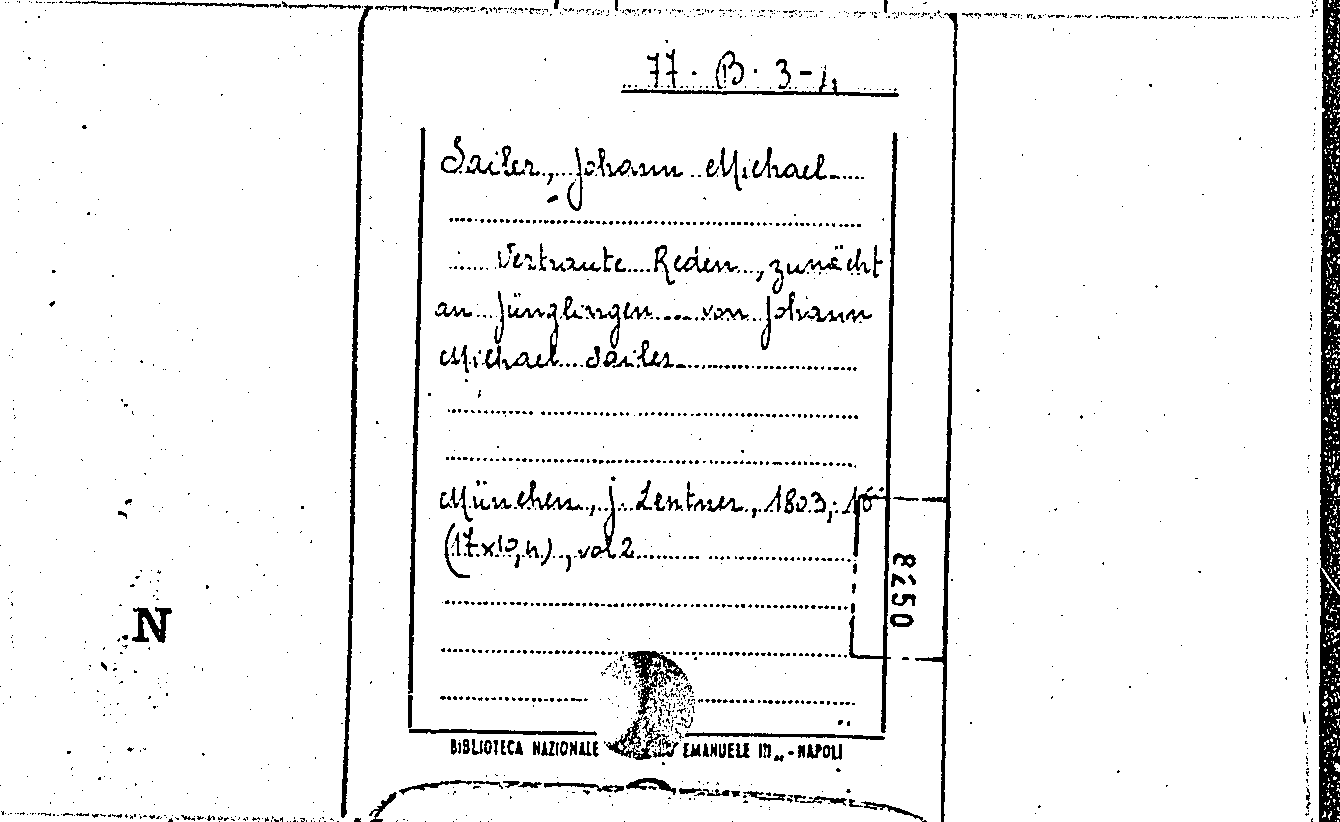 77 · B · 3-4
Sailer, Johann Michael
Vertraute Reden, zunächt
an Jünglingen ... von Johann
Michael Sailer
München, J. Lentner, 1803, 16°
(17x10,4), vol 2
8250
N
BIBLIOTECA NAZIONALE EMANUELE III„ - NAPOLI